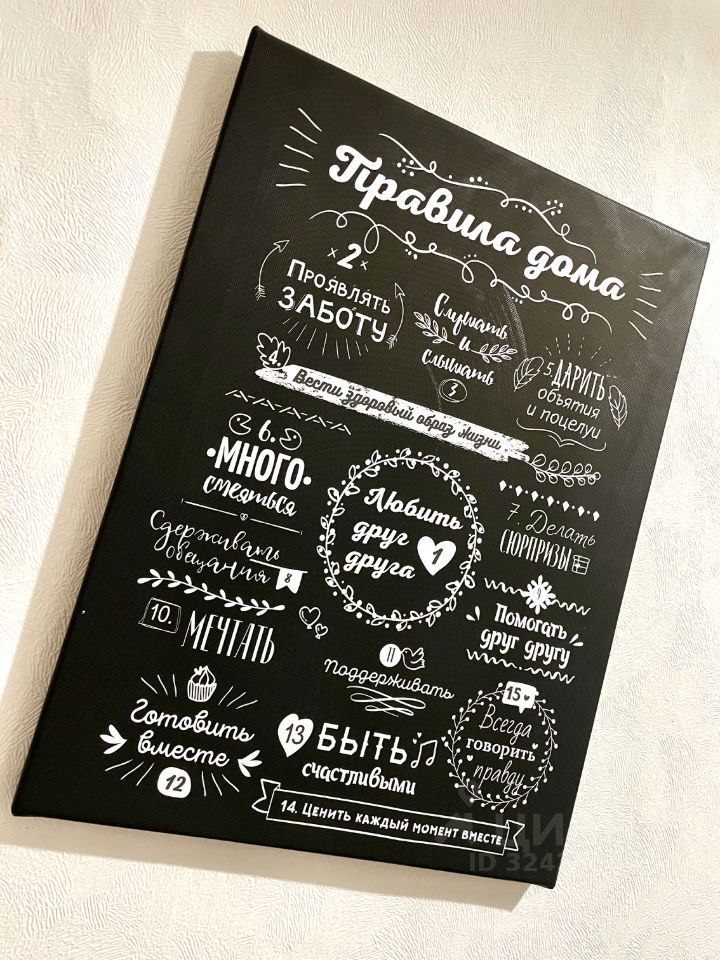 Правила дома
2
Проявлять
заботу
Слушать
и
слышать
3
5. Дарить
объятия
и поцелуи
4.
Вести здоровый образ жизни
6.
МНОГО
смеяться
Любить
друг
друга
1
7. Делать
сюрпризы
Сдерживать
обещания
8
Помогать
друг другу
10.
МЕЧТАТЬ
11
Поддерживать
15
Всегда
говорить
правду
Готовить
вместе
12
13
БЫТЬ
счастливыми
14. Ценить каждый момент вместе
ID 324